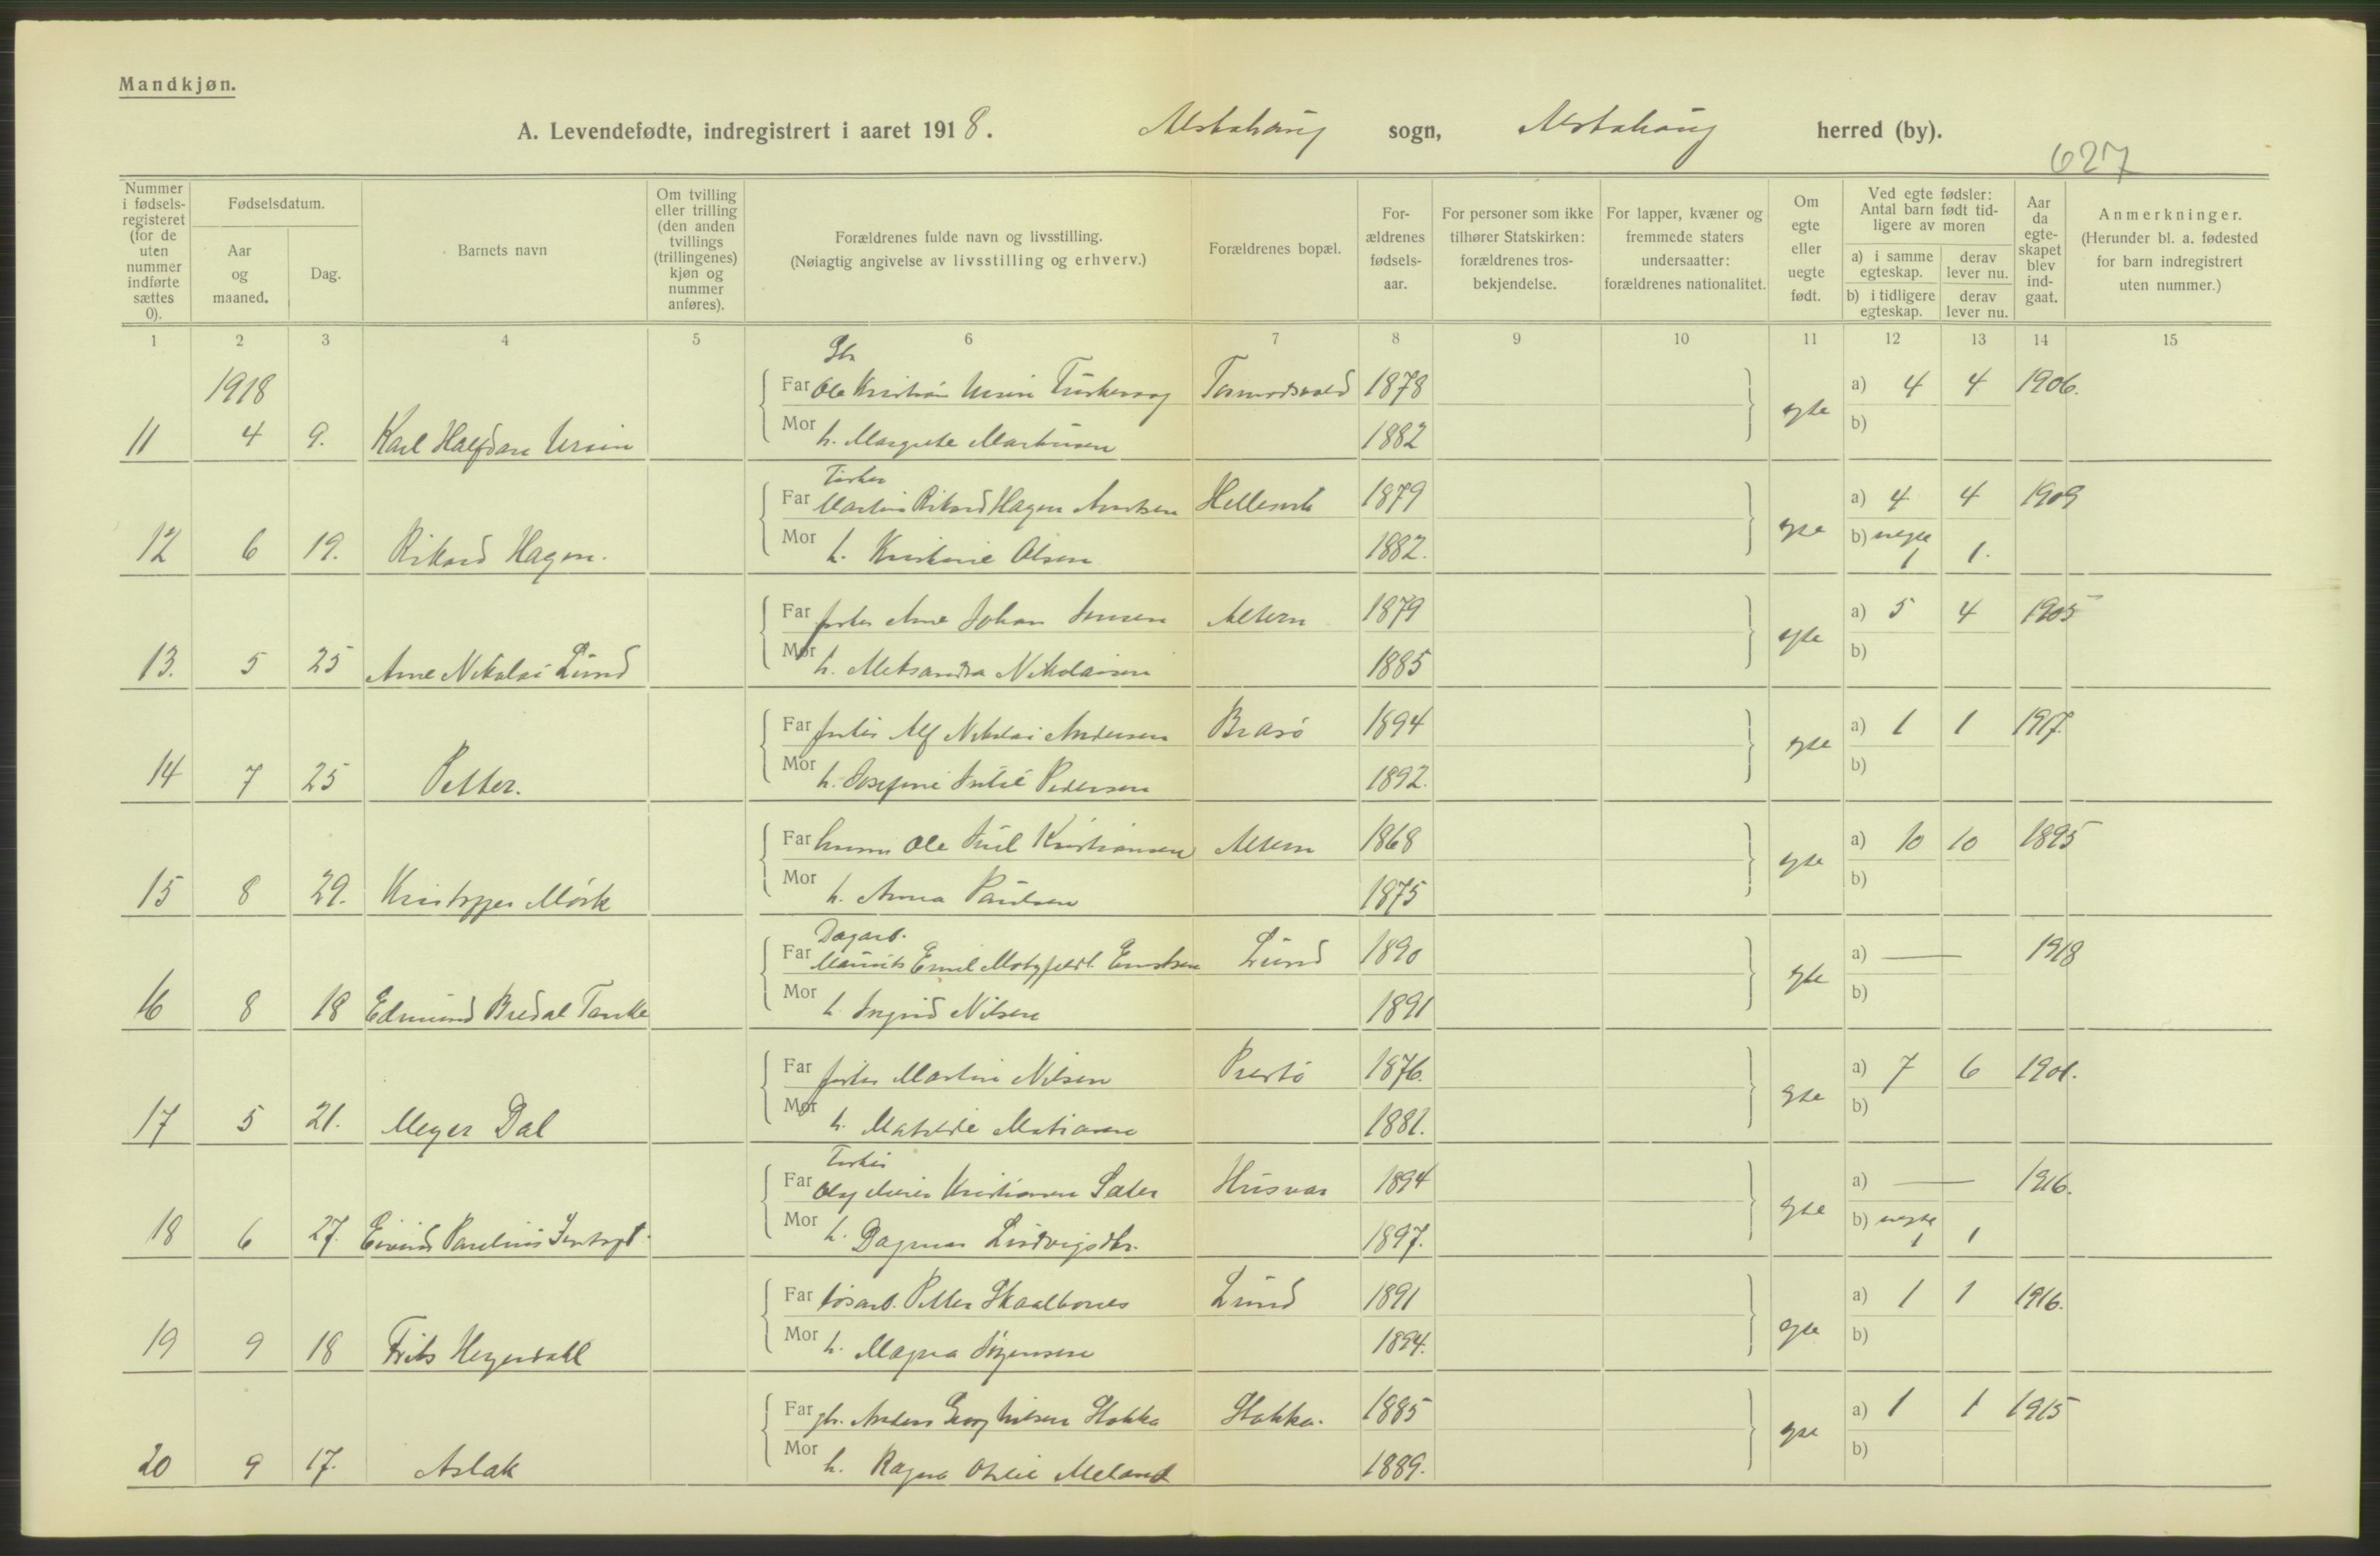 Mandkjøn.
A. Levendefødte, indregistrert i aaret 1918. Alstahaug sogn, Alstahaug herred (by).
627
Nummer i fødselsregisteret (for de uten nummer indførte sættes 0).
Fødselsdatum.
Aar og maaned.
Dag.
Barnets navn
Om tvilling eller trilling (den anden tvillings (trillingenes) kjøn og nummer anføres).
Forældrenes fulde navn og livsstilling.
(Nøiagtig angivelse av livsstilling og erhverv.)
Forældrenes bopæl.
For-ældrenes fødsels-aar.
For personer som ikke tilhører Statskirken: forældrenes tros-bekjendelse.
For lapper, kvæner og fremmede staters undersaatter: forældrenes nationalitet.
Om egte eller uegte født.
Ved egte fødsler: Antal barn født tid-ligere av moren
a) i samme egteskap.
derav lever nu.
b) i tidligere egteskap.
derav lever nu.
Aar da egte-skapet blev ind-gaat.
Anmerkninger.
(Herunder bl. a. fødested for barn indregistrert uten nummer.)
1 2 3 4 5 6 7 8 9 10 11 12 13 14 15
1918
Far Ole Kristian 1878 a) 4 4 1906.
11 4 9. Karl Halfdan Mor h. Margrete 1882 egte b)
Far Martin Rikard Hagen 1879 a) 4 4 1909
12 6 19. Rikard Hagen. Mor h. Kristine Olsen 1882. egte b) uegte 1 1.
Far fisker Arne Johan Jensen Alsten 1879 a) 5 4 1905
13. 5 25 Arne Nikolai Lund Mor h. Aleksandra Nikolaisen 1885 egte b)
Far fisker Alf Nikolai Andersen Brasø 1894 a) 1 1 1917.
14 7 25 Petter. Mor h. Josefine Julie Pedersen 1892. egte b)
Far Ole Juel Kristiansen Alsten 1868 a) 10 10 1895
15 8 29. Kristoffer Mørk Mor h. Anna Paulsen 1875 egte b)
Dagarb.
Far Emil Lund 1890 a) — 1918
16 8 18 Edmund Bredal Tanke Mor h. Ingrid Nilsen 1891 egte b)
Far fisker Martin Nilsen Prestø 1876. a) 7 6 1901.
17 5 21. Meyer Dal Mor h. Matilde 1881. egte b)
Fisker
Far Kristiansen Husvær 1894 a) — 1916.
18 6 27. Eivind Mor h. Dagmar Ludvigsdtr. 1897. egte b) uegte 1 1
Far løsarb. Petter Skaalbones Lund 1891 a) 1 1 1916.
19 9 18 Frits Heyerdahl Mor h. Magna Jørgensen 1894. egte b)
Far gbr. Anders Georg Nilsen Stokka Stokka. 1885 a) 1 1 1915
20 9 17. Aslak Mor h. Ragna Otelie Meland 1889. egte b)